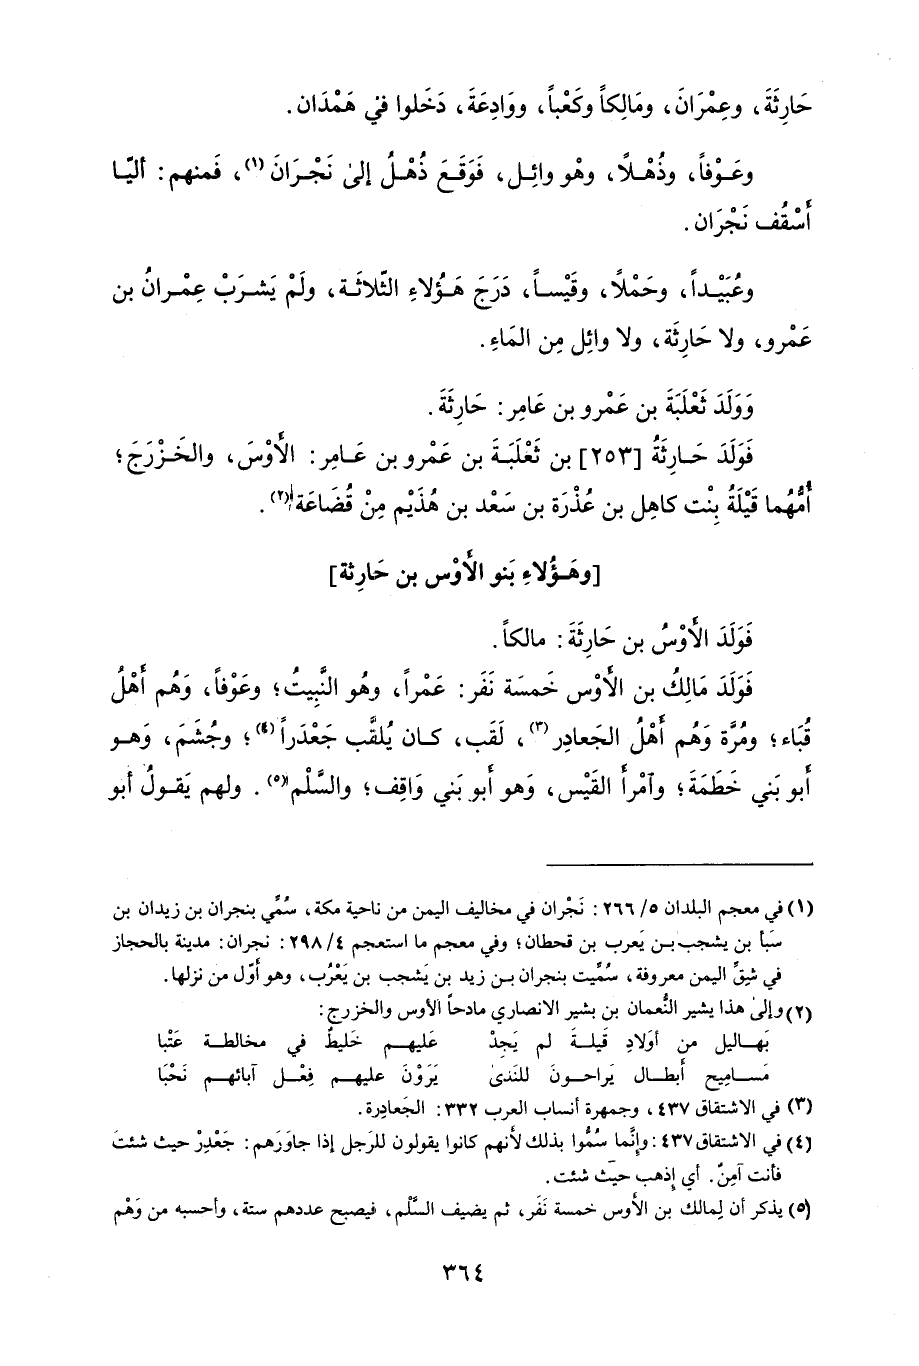 حَارِثَةَ، وعِمْرَانَ، ومَالِكاً وكَعْباً، ووَادِعَةَ، دَخَلوا في هَمْدَان.
وعَوْفاً، وذُهْلًا، وهْو وائِل، فَوَقَعَ ذُهْلُ إلىٰ نَجْرَانَ (١)، فَمنهم: أليّا
أَسْقُف نَجْرَان.
وعُبَيْداً، وحَمْلًا، وقَيْساً، دَرَجَ هَؤُلاءِ الثّلاثَة، ولَمْ يَشرَبْ عِمْرانُ بن
عَمْرو، ولا حَارِثَة، ولا وائِل مِن المَاءِ.
وَوَلَدَ ثَعْلَبَةَ بن عَمْرو بن عَامِر: حَارِثَةَ.
فَوَلَدَ حَارِثَةُ [٢٥٣] بن ثَعْلَبَةَ بن عَمْرو بن عَامِر: الأَوْسَ، والخَزْرَجَ؛
أُمُّهُما قَيْلَةُ بِنْت كاهِل بن عُذْرَة بن سَعْد بن هُذَيْم مِنْ قُضَاعَة(٢).
[وهَؤُلاءِ بَنو الأَوْس بن حَارِثة]
فَوَلَدَ الأَوْسُ بن حَارِثَةَ: مالكاً.
فَوَلَدَ مَالِكُ بن الأَوْس خَمسَة نَفَر: عَمْراً، وهُو النَّبِيتُ؛ وعَوْفاً، وَهُم أَهْلُ
قُبَاء؛ ومُرَّة وَهُم أَهْلُ الجَعادِر(٣)، لَقَب، كان يُلقَّب جَعْدَراً(٤)؛ وجُشَمَ، وَهو
أَبو بَني خَطَمَةَ؛ وآمْرأَ القَيْس، وَهو أَبو بَني وَاقِف؛ والسَّلْم(٥). ولهم يَقولُ أبو
(١) في معجم البلدان ٥/ ٢٦٦: نَجْران في مخاليف اليمن من ناحية مكة، سُمِّي بنجران بن زيدان بن
سَبأ بن يشجب بن يَعرب بن قحطان؛ وفي معجم ما استعجم ٤/ ٢٩٨: نجران: مدينة بالحجاز
في شِقِّ اليمن معروفة، سُمِّيت بنجران بن زيد بن يَشجب بن يَعْرُب، وهو أوّل من نزلها.
(٢) وإلىٰ هذا يشير النُّعمان بن بشير الانصاري مادحاً الأوس والخزرج:
بَهاليل من أوْلادِ قَيلة لم يَجِدْ عَليهم خَليطٌ في مخالطة عَتْبا
مَسامِيح أبطال يَراحونَ للنَدىٰ يَرَوْنَ عليهم فِعْل آبائهم نَحْبَا
(٣) في الاشتقاق ٤٣٧، وجمهرة أنساب العرب ٣٣٢: الجَعادِرة.
(٤) في الاشتقاق ٤٣٧: وإنَّما سُمُّوا بذلك لأنهم كانوا يقولون للرَجل إذا جاوَرَهم: جَعْدِرْ حيث شئتَ
فأنت آمِنٌ. أي إذهب حيث شئت.
(٥) يذكر أن لِمالك بن الأوس خمسة نَفَر، ثم يضيف السَّلم، فيصبح عددهم ستة، وأحسبه من وَهْم
٣٦٤